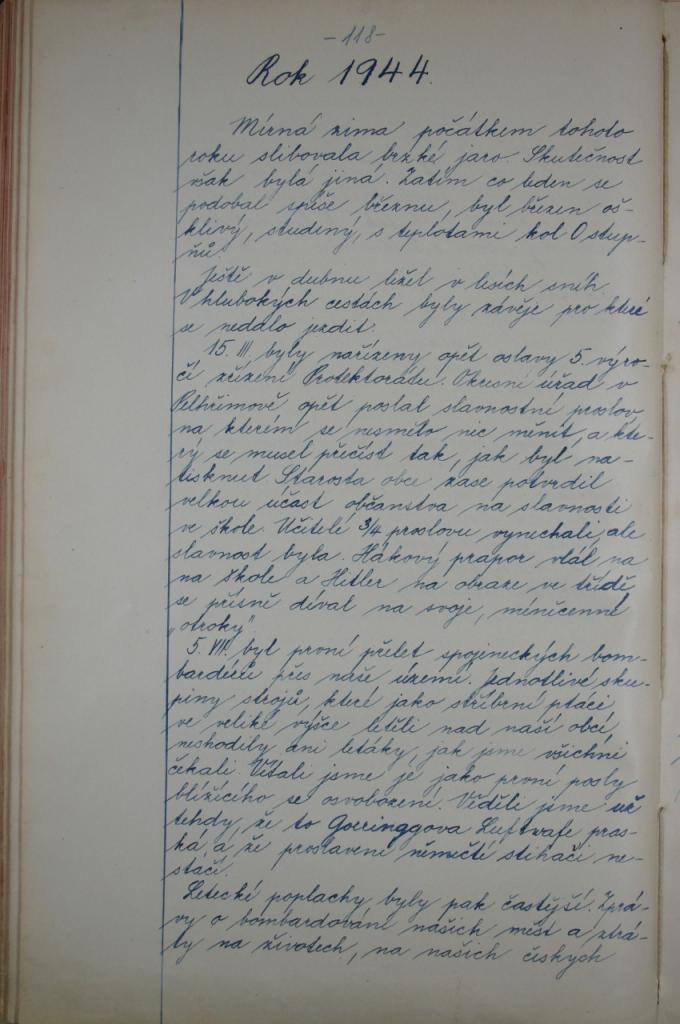 -118-
Rok 1944.
Mírná zima počátkem tohoto
roku slibovala brzké jaro. Skutečnost
však bylá jiná. Zatím co leden se
podobal spíše březnu, byl březen oš-
klivý, studený, s teplotami kol 0 stup-
ňů.
Ještě v dubnu ležel v lesích sníh.
V hlubokých cestách byly závěje pro které
se nedalo jezdit.
15. III. byly nařízeny opět oslavy 5. výro-
čí zřízení Protektorátu. Okresní úřad v
Pelhřimově opět poslal slavnostní proslov,
na kterém se nesmělo nic měnit, a kte-
rý se musel přečíst tak, jak byl na-
tisknut Starosta obce zase potvrdil
velkou účast občanstva na slavnosti
ve škole. Učitelé 3/4 proslovu vynechali, ale
slavnost byla. Hákový prapor vlál na
na škole a Hitler na obraze ve třídě
se přísně díval na svoje, méněcenné
„otroky".
5. VII. byl první přelet spojineckých bom-
bardérů přes naše území. Jednotlivé sku-
piny strojů, které jako stříbrní ptáci
ve veliké výšce letěli nad naší obcí,
neshodily ani letáky, jak jsme všichni
čekali. Vítali jsme je jako první posly
blížícího se osvobození. Věděli jsme už
tehdy, že to Goeringgova Luftwafe pras-
ká, a že proslavení němečtí stihači ne-
stačí.
Letecké poplachy byly pak častější. Zprá-
vy o bombardování našich měst a ztrá-
ty na životech, na našich českých